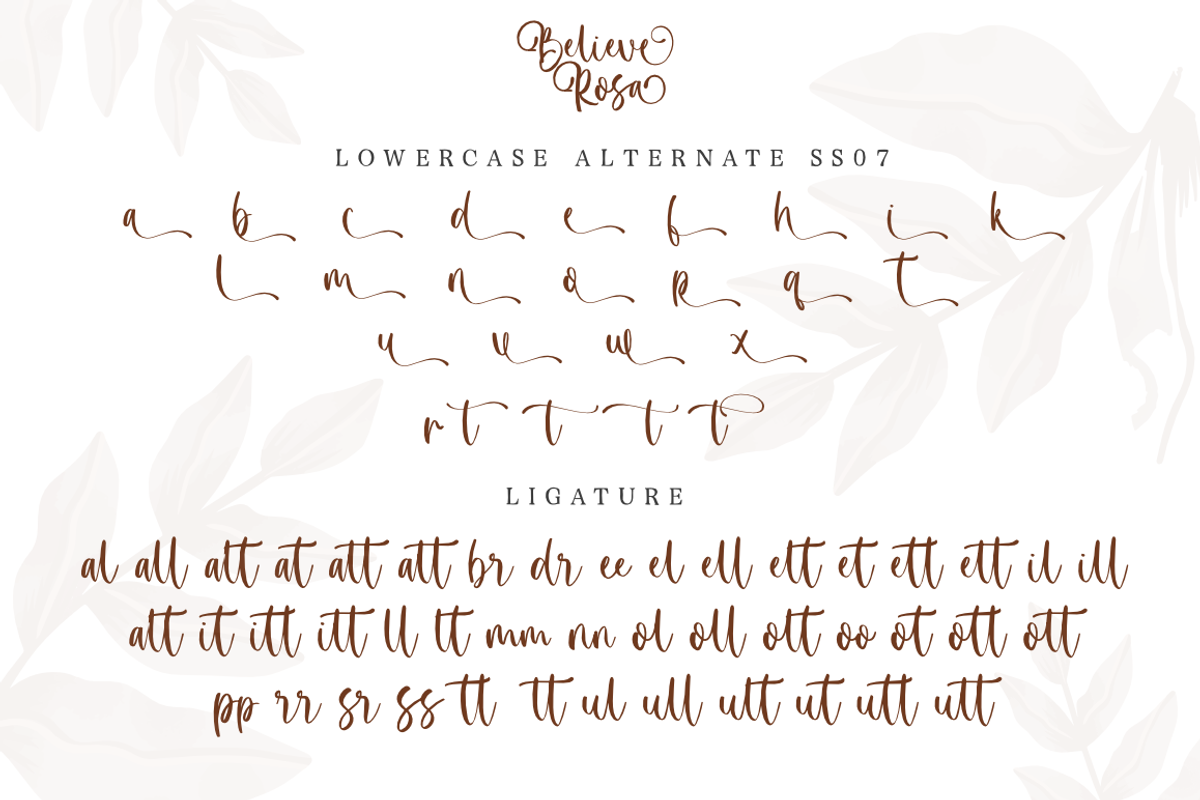 Believe
Rosa
LOWERCASE ALTERNATE SS07
a b c d e f h i k
l m n o p q t
u v w x
rt t t t
LIGATURE
al all alt at att att br dr ee el ell elt et ett ett il ill
alt it itt itt ll lt mm nn ol oll olt oo ot ott ott
pp rr sr ss tt tt ul ull ult ut utt utt